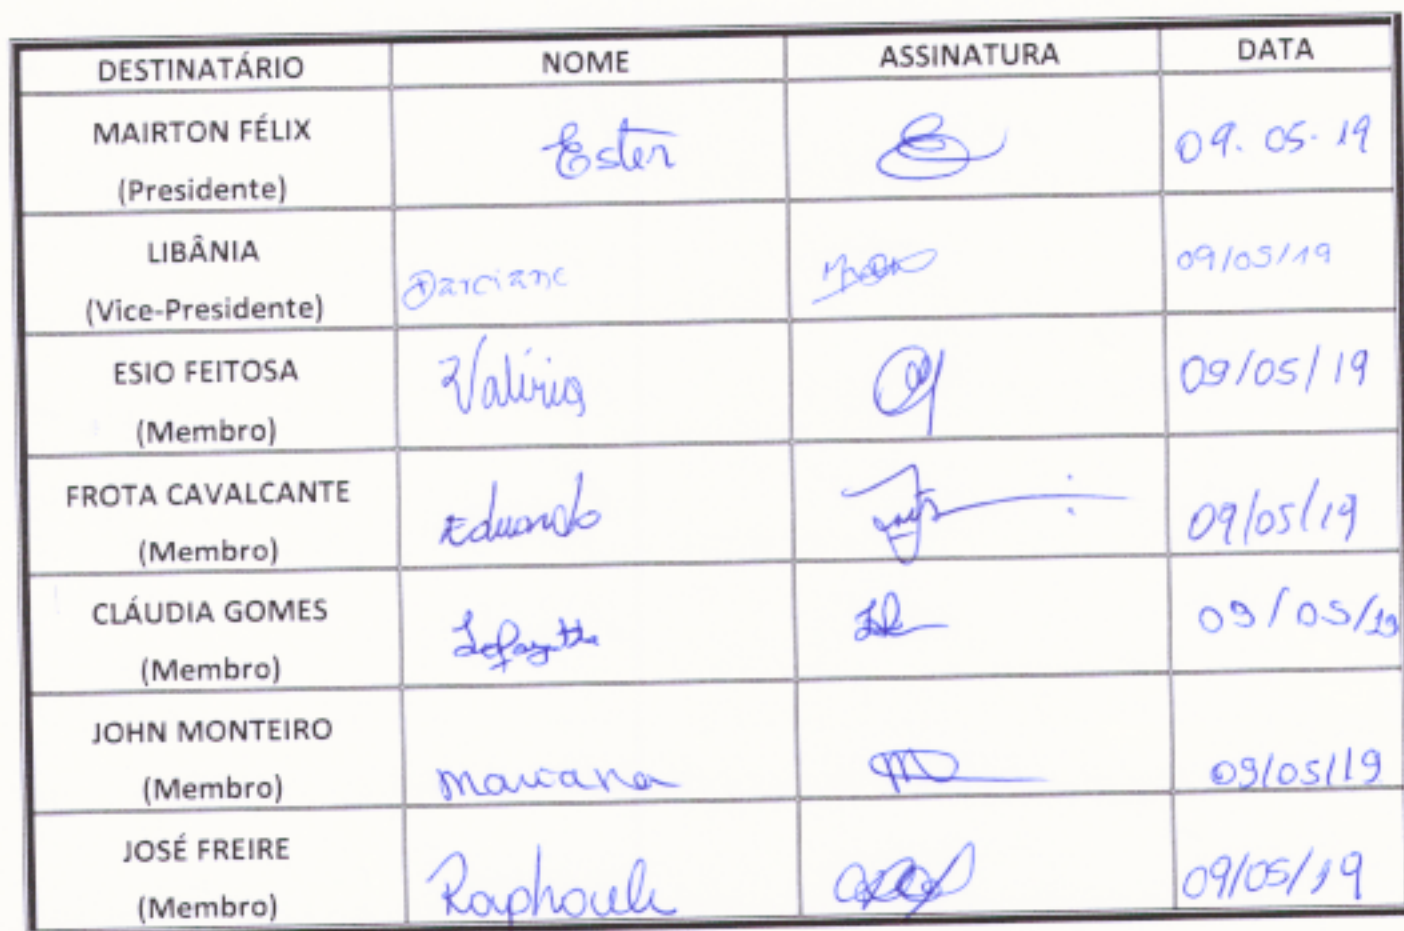 DESTINATÁRIO NOME ASSINATURA DATA
MAIRTON FÉLIX
(Presidente)
Ester
09.05.19
LIBÂNIA
(Vice-Presidente)
Darciane
09/05/19
ESIO FEITOSA
(Membro)
Valíria
09/05/19
FROTA CAVALCANTE
(Membro)
Eduardo
09/05/19
CLÁUDIA GOMES
(Membro)
09/05/19
JOHN MONTEIRO
(Membro)
Mariana
09/05/19
JOSÉ FREIRE
(Membro)
09/05/19